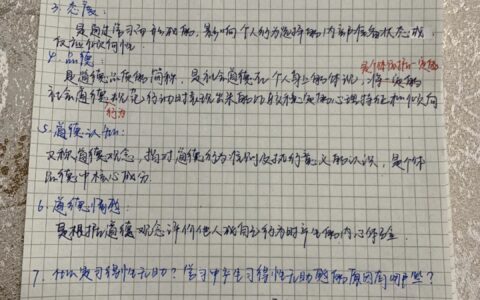 3. 态度:
是通过学习而形成的,影响个人行为选择的内部准备状态或
反应的倾向性
4. 品德:
是个体依据一定的
是道德品质的简称,是社会道德在个人身上的体现,将一定的
社会道德规范行动时表现出来的比较稳定的心理特征和倾向
行为
5. 道德认知:
又称道德观念,指对道德行为准则及执行意义的认识,是个体
品德中核心成分.
6. 道德情感:
是根据道德观念评价他人或自己行为时产生的内心体验
7. 什么是习得性无助?学习中产生习得性无助感的原因有哪些?